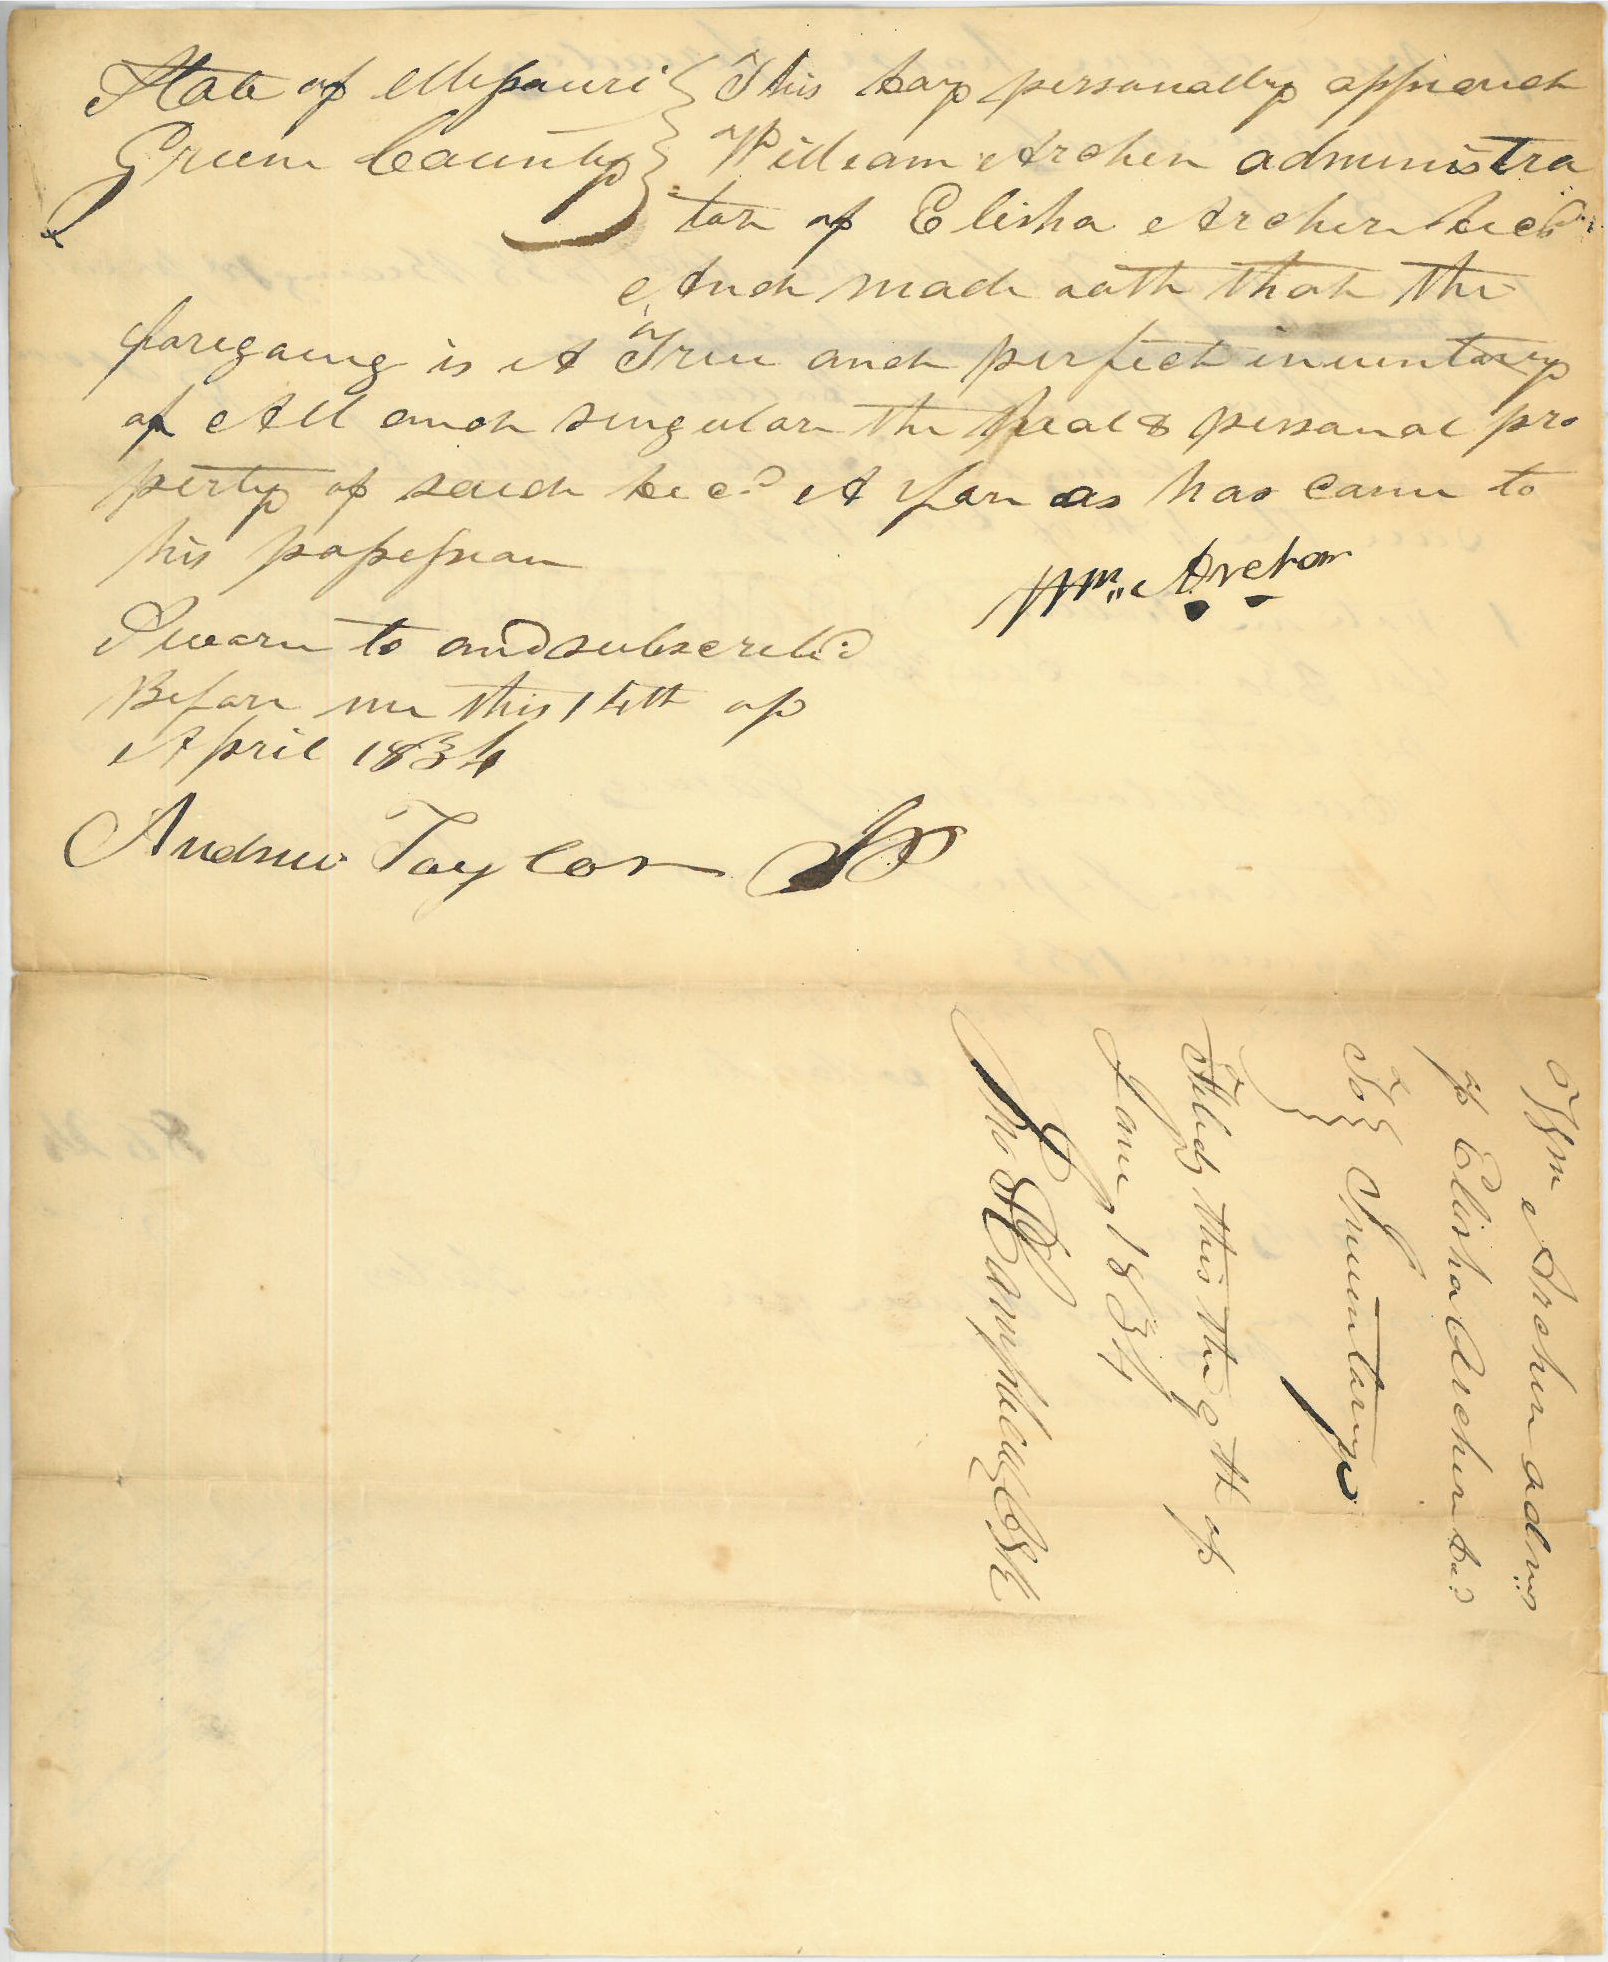 State of Missouri } This day personally appeared
Green County } William Archer administra
tor of Elisha Archer decd
And made oath that the
foregoing is A True and perfect inventory
of All and singular the Real & personal pro
perty of said decd A far as has came to
his possession
Wm Archor
Sworn to and subscribd
Before me this 14th of
April 1834
Andrew Taylor JP
Wm Archer admr
of Elisha Archer decd
To } Inventary
Filed this the 9th of
June 1834